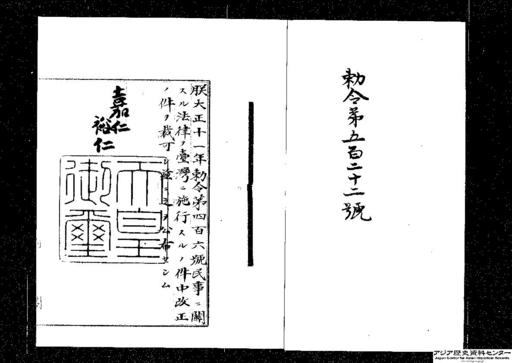 勅令第五百二十二號
朕大正十一年勅令第四百六號民事ニ關
スル法律ヲ臺灣ニ施行スルノ件中改正
ノ件ヲ裁可シ茲ニ之ヲ公布セシム
嘉仁
裕仁
天皇御璽
アジア歴史資料センター
Japan Center for Asian Historical Records